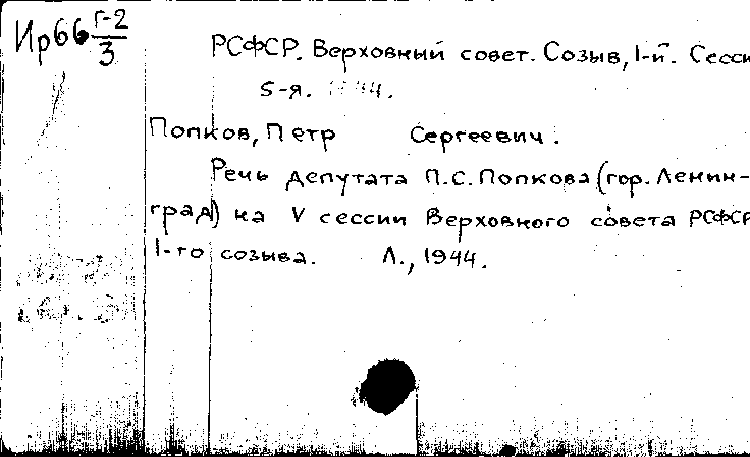 Ир66 Г-2/3
РСФСР. Верховный совет. Созыв, 1-й. Сесси
5-я.
Попков, Петр Сергеевич.
Речь депутата П.С. Попкова (гор. Ленин-
град) на V сессии Верховного совета РСФСР
1-го созыва. Л., 1944.